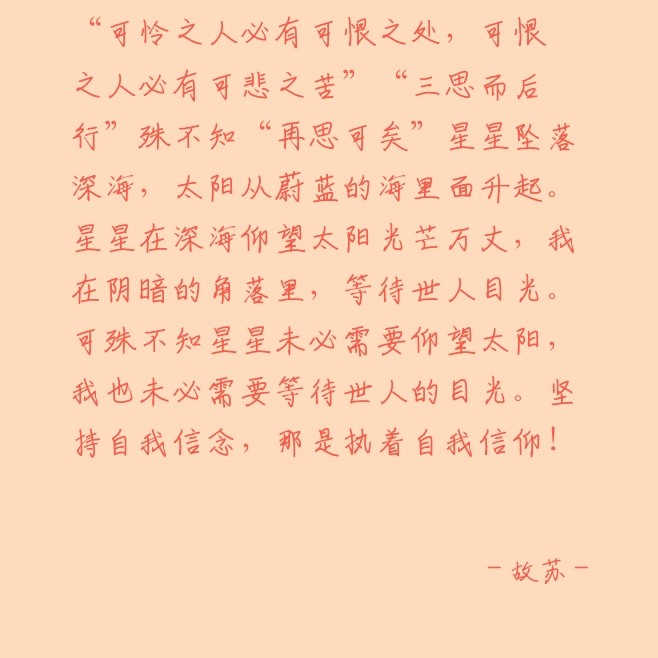 “可怜之人必有可恨之处，可恨
之人必有可悲之苦”“三思而后
行”殊不知“再思可矣”星星坠落
深海，太阳从蔚蓝的海里面升起。
星星在深海仰望太阳光芒万丈，我
在阴暗的角落里，等待世人目光。
可殊不知星星未必需要仰望太阳，
我也未必需要等待世人的目光。坚
持自我信念，那是执着自我信仰！
－故苏－